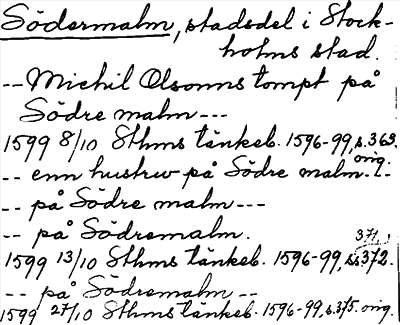 Södermalm, stadsdel i Stock-
holms stad.
-- Michil Olsonns tompt på
Södre malm ---
1599 8/10 Sthms tänkeb. 1596-99, s. 363.
orig.
-- enn hustrw på Södre malm.
-- på Södre malm ---
-- på Södremalm. 371,
1599 13/10 Sthms tänkeb. 1596-99, s. 372.
-- på Södremalm --
1599 27/10 Sthms tänkeb. 1596-99, s. 375. orig.